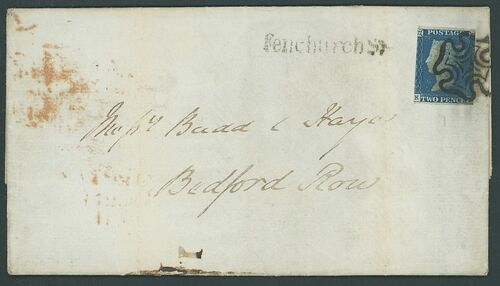 Fenchurch St
POSTAGE
TWO PENCE
Mess.rs Budd & Hayes
Bedford Row